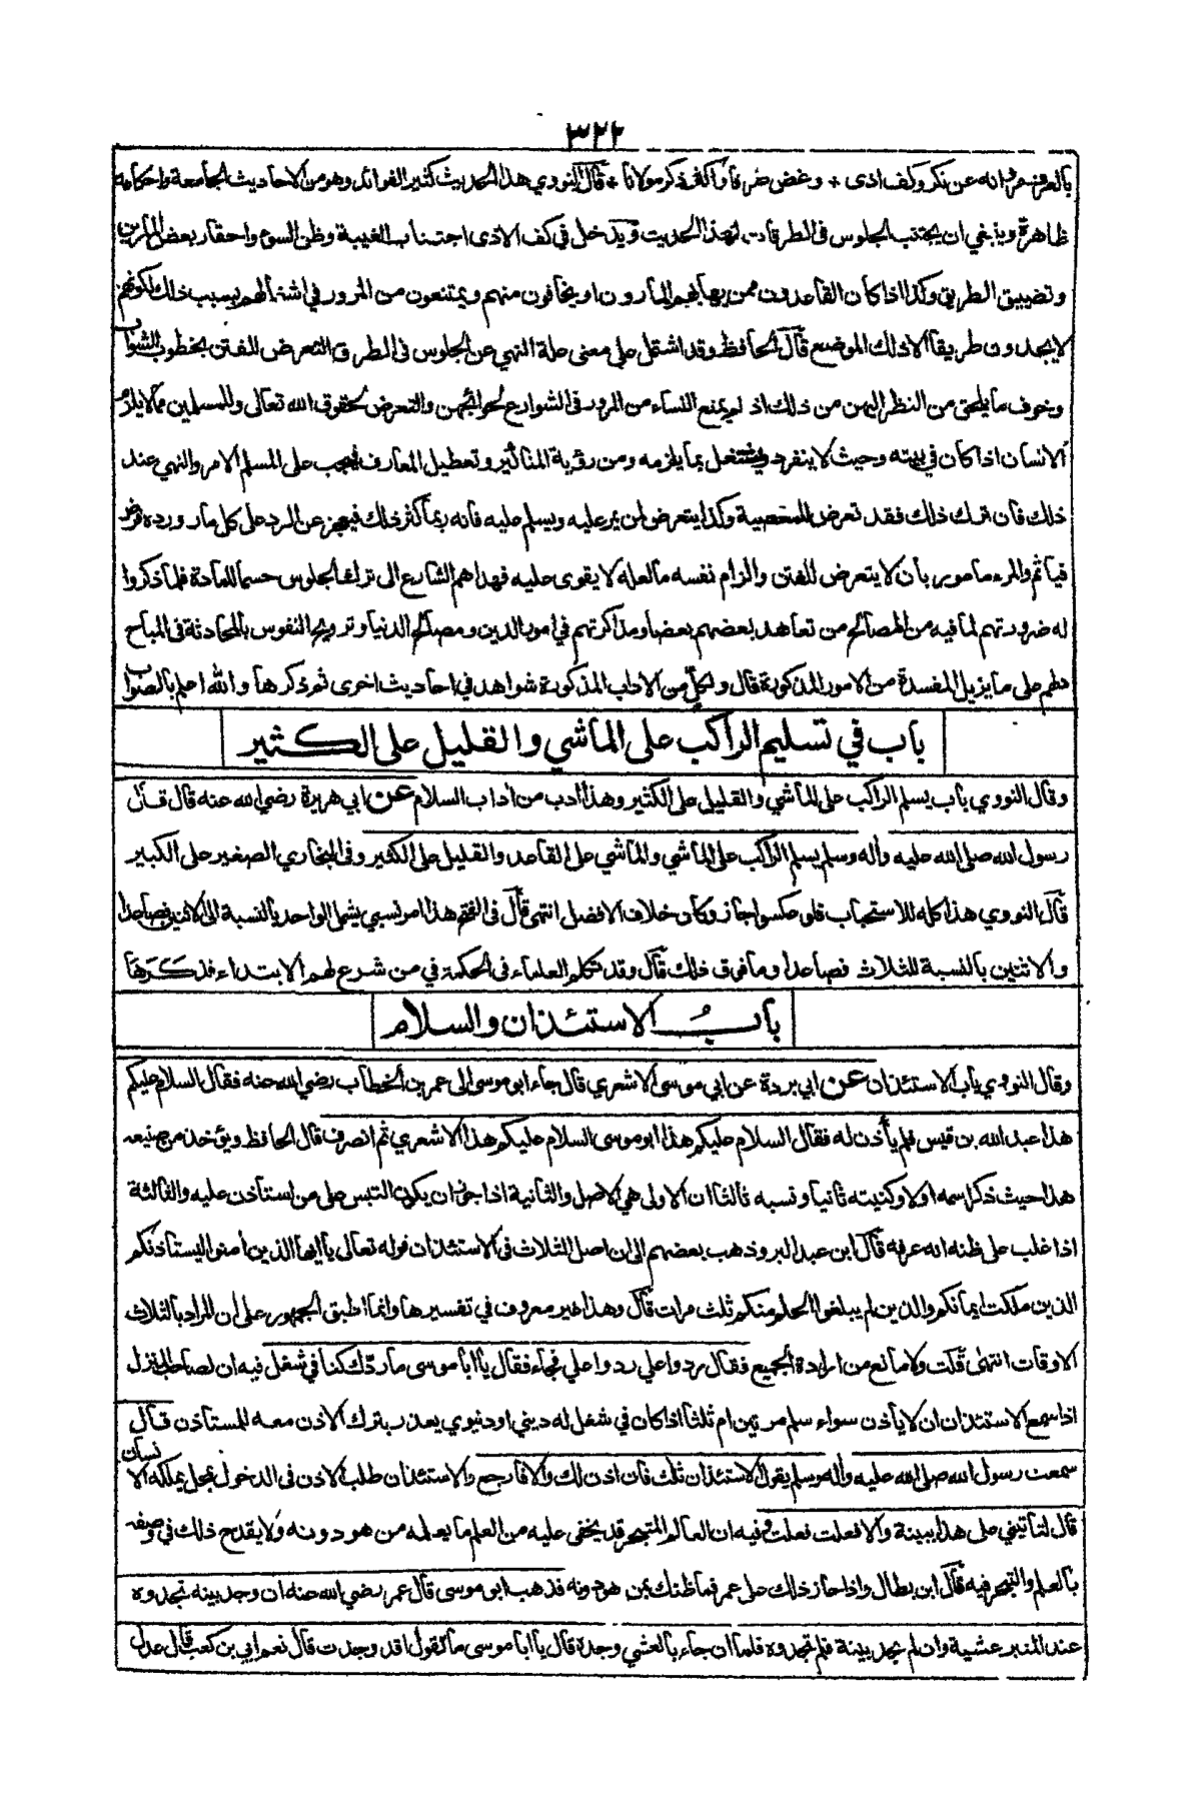 ٣٢٢
بالعرف مروانه عن نكر وكف اذى + وغض طرفا واكثر ذكر مولانا + قال النووي هذا الحديث كثير الفوائد وهو من الاحاديث الجامعة واحكامه
ظاهرة وينبغي ان يجتنب الجلوس في الطرقات لهذا الحديث ويدخل في كف الاذى اجتناب الغيبة وظن السوء واحقار بعض المارين
وتضييق الطريق وكذا اذا كان القاعدون ممن يهابهم المارون او يخافون منهم ويمتنعون من المرور في اشغالهم بسبب ذلك لكونهم
لا يجدون طريقا الا ذلك الموضع قال الحافظ وقد اشتمل على معنى علة النهي عن الجلوس في الطرق التعرض للفتن بخطور الشواب
وخوف ما يلحق من النظر اليهن من ذلك اذ لم يمنع النساء من المرور في الشوارع لحوائجهن والتعرض لحقوق الله تعالى وللمسلمين مما لا يلزم
الانسان اذا كان في بيته وحيث لا ينفرد ويشتغل بما يلزمه ومن رؤية المناكير وتعطيل المعارف فيجب على المسلم الامر والنهي عند
ذلك فان ترك ذلك فقد تعرض للمعصية وكذا يتعرض لمن يمر عليه ويسلم عليه فانه ربما كثر ذلك فيعجز عن الرد على كل مار ورده فرض
فيأثم والمرء مامور بان لا يتعرض للفتن والزام نفسه ما لعله لا يقوى عليه فهداهم الشارع الى ترك الجلوس حسما للمادة فلما ذكروا
له ضرورتهم لما فيه من المصالح من تعاهد بعضهم بعضا ومذاكرتهم في امور الدين ومصالح الدنيا وترويح النفوس بالمحادثة في المباح
دلهم على ما يزيل المفسدة من الامور المذكورة قال ولكل من الاداب المذكورة شواهد في احاديث اخرى ثم ذكرها والله اعلم بالصواب
باب في تسليم الراكب على الماشي والقليل على الكثير
وقال النووي باب يسلم الراكب على الماشي والقليل على الكثير وهذا ادب من اداب السلام عن ابي هريرة رضي الله عنه قال قال
رسول الله صلى الله عليه واله وسلم يسلم الراكب على الماشي والماشي على القاعد والقليل على الكثير وفي البخاري الصغير على الكبير
قال النووي هذا كله للاستحباب فلو عكسوا جاز وكان خلاف الافضل انتهى قال في الفتح هذا امر نسبي يشمل الواحد بالنسبة الى الاثنين فصاعدا
والاثنين بالنسبة للثلاث فصاعدا وما فوق ذلك قال وقد تكلم العلماء في الحكمة في من شرع لهم الابتداء فذكرها
باب الاستئذان والسلام
وقال النووي باب الاستئذان عن ابي بردة عن ابي موسى الاشعري قال جاء ابو موسى الى عمر بن الخطاب رضي الله عنه فقال السلام عليكم
هذا عبد الله بن قيس فلم يأذن له فقال السلام عليكم هذا ابو موسى السلام عليكم هذا الاشعري ثم انصرف قال الحافظ ويؤخذ من صنيعه
هذا حيث ذكر اسمه اولا وكنيته ثانيا ونسبه ثالثا ان الاولى هي الاصل والثانية اذا جوز ان يكون التبس على من استأذن عليه والثالثة
اذا غلب على ظنه انه عرفه قال ابن عبد البر وذهب بعضهم الى ان اصل الثلاث في الاستئذان قوله تعالى يا ايها الذين أمنوا ليستأذنكم
الذين ملكت ايمانكم والذين لم يبلغوا الحلم منكم ثلث مرات قال وهذا غير معروف في تفسيرها وانما اطبق الجمهور على ان المراد بالثلاث
الاوقات انتهى قلت ولا مانع من ارادة الجميع فقال ردوا علي ردوا علي فجاء فقال يا ابا موسى ما ردك كنا في شغل فيه ان لصاحب المنزل
اذا سمع الاستئذان ان لا يأذن سواء سلم مرتين ام ثلثا اذا كان في شغل له ديني او دنيوي يعذر بترك الاذن معه للمستأذن قال
سمعت رسول الله صلى الله عليه واله وسلم يقول الاستئذان ثلث فان اذن لك والا فارجع والاستئذان طلب الاذن في الدخول لمحل يملكه الانسان
قال لتأتيني على هذا ببينة والا فعلت فعلت وفيه ان العالم المتبحر قد يخفى عليه من العلم ما يعلمه من هو دونه ولا يقدح ذلك في وصفه
بالعلم والتبحر فيه قال ابن بطال واذا جاز ذلك على عمر فما ظنك بمن هو دونه فذهب ابو موسى قال عمر رضي الله عنه ان وجد بينه تجدوه
عند المنبر عشية وان لم يجد بينة فلم تجدوه فلما ان جاء بالعشي وجده قال يا ابا موسى ما تقول اقد وجدت قال نعم ابي بن كعب قال عدل